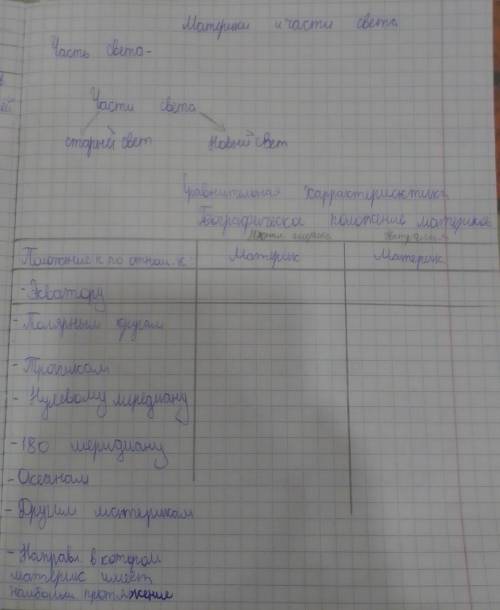 Материки и части света
Часть света-
Части света
старый свет Новый свет
Сравнительная харрактеристика
Географическое положение материков
Положение к по отнош. к: Материк Материк
- Экватору
- Полярным кругам
- Тропикам
- Нулевому меридиану
- 180 меридиану
- Океанам
- Другим материкам
- Направл в котором
материк имеет
наибольш протяжение